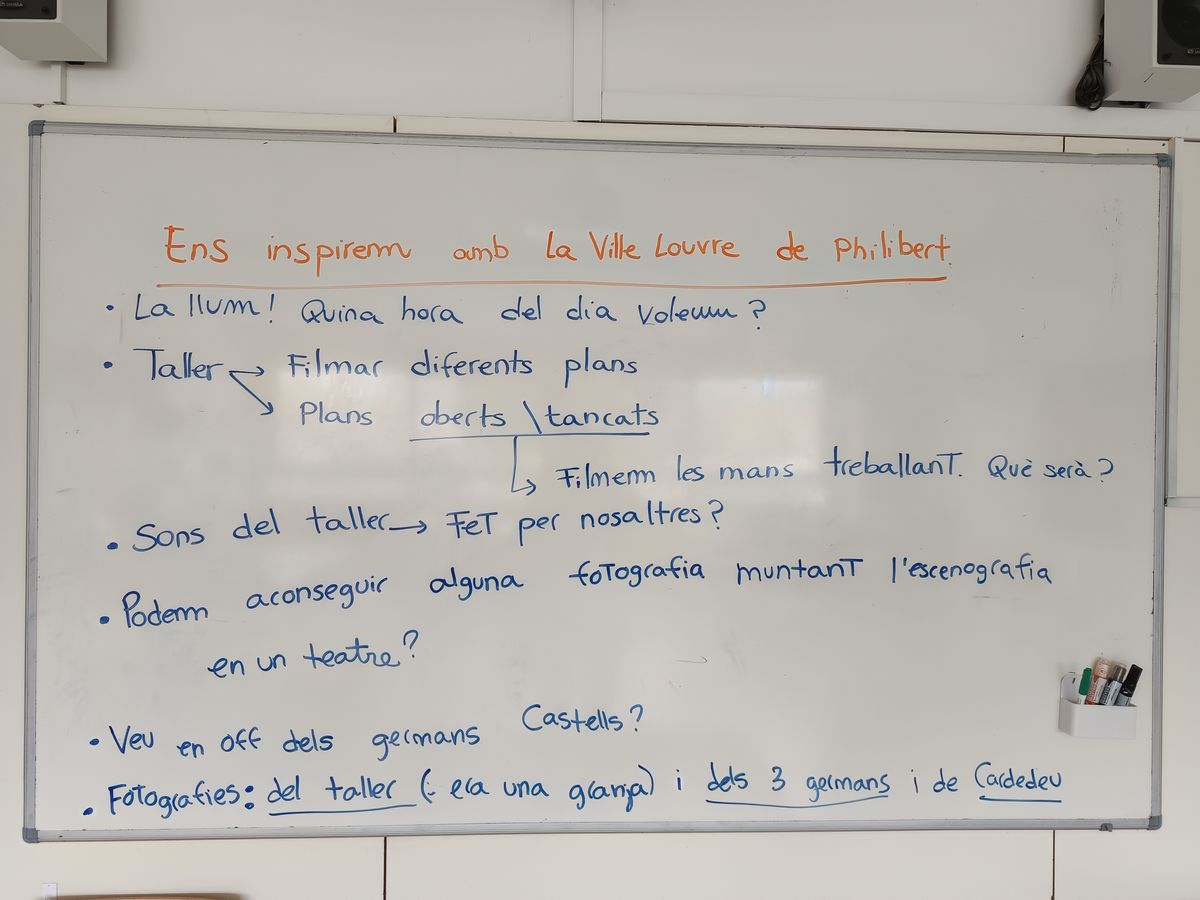 Ens inspirem amb La Ville Louvre de Philibert.
• La llum! Quina hora del dia volem?
• Taller → Filmar diferents plans
→ Plans oberts \ tancats
↳ Filmem les mans treballant. Què serà?
• Sons del taller → Fet per nosaltres?
• Podem aconseguir alguna fotografia muntant l'escenografia
en un teatre?
• Veu en off dels germans Castells?
• Fotografies: del taller (: era una granja) i dels 3 germans i de Cardedeu